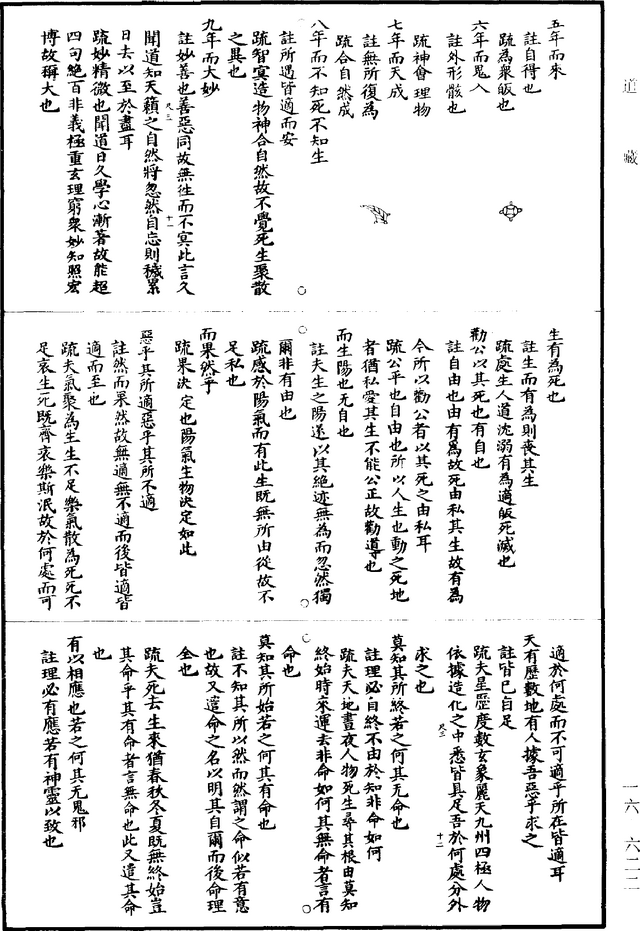 道藏
五年而來
註自得也
疏為衆皈也
六年而鬼入
註外形骸也
疏神會理物
七年而天成
註無所復為
疏合自然成
八年而不知死不知生
註所遇皆適而安
疏智冥造物神合自然故不覺死生聚散
之異也
九年而大妙
註妙善也善惡同故無徃而不冥此言久
聞道知天籟之自然將忽然自忘則穢累
日去以至於盡耳
疏妙精微也聞道日久學心漸著故能超
四句絕百非義極重玄理窮衆妙知照宏
博故稱大也
生有為死也
註生而有為則喪其生
疏處生人道沈溺有為適皈死滅也
勸公以其死也有自也
註自由也由有為故死由私其生故有為
今所以勸公者以其死之由私耳
疏公平也自由也所以人生也動之死地
者猶私愛其生不能公正故勸導也
而生陽也无自也
註夫生之陽遂以其絕迹無為而忽然獨
爾非有由也
疏感於陽氣而有此生既無所由從故不
足私也
而果然乎
疏果決定也陽氣生物決定如此
惡乎其所適惡乎其所不適
註然而果然故無適無不適而後皆適皆
適而至也
疏夫氣聚為生生不足樂氣散為死死不
足哀生死既齊哀樂斯泯故於何處而可
適於何處而不可適乎所在皆適耳
天有歷數地有人據吾惡乎求之
註皆已自足
疏夫星歷度數玄象麗天九州四極人物
依據造化之中悉皆具足吾於何處分外
求之也
莫知其所終若之何其无命也
註理必自終不由於知非命如何
疏夫天地晝夜人物死生尋其根由莫知
終始時來運去非命如何其無命者言有
命也
莫知其所始若之何其有命也
註不知其所以然而然謂之命似若有意
也故又遣命之名以明其自爾而後命理
全也
疏夫死去生來猶春秋冬夏既無終始豈
其命乎其有命者言無命也此又遣其命
也
有以相應也若之何其无鬼邪
註理必有應若有神靈以致也
一六 六二二